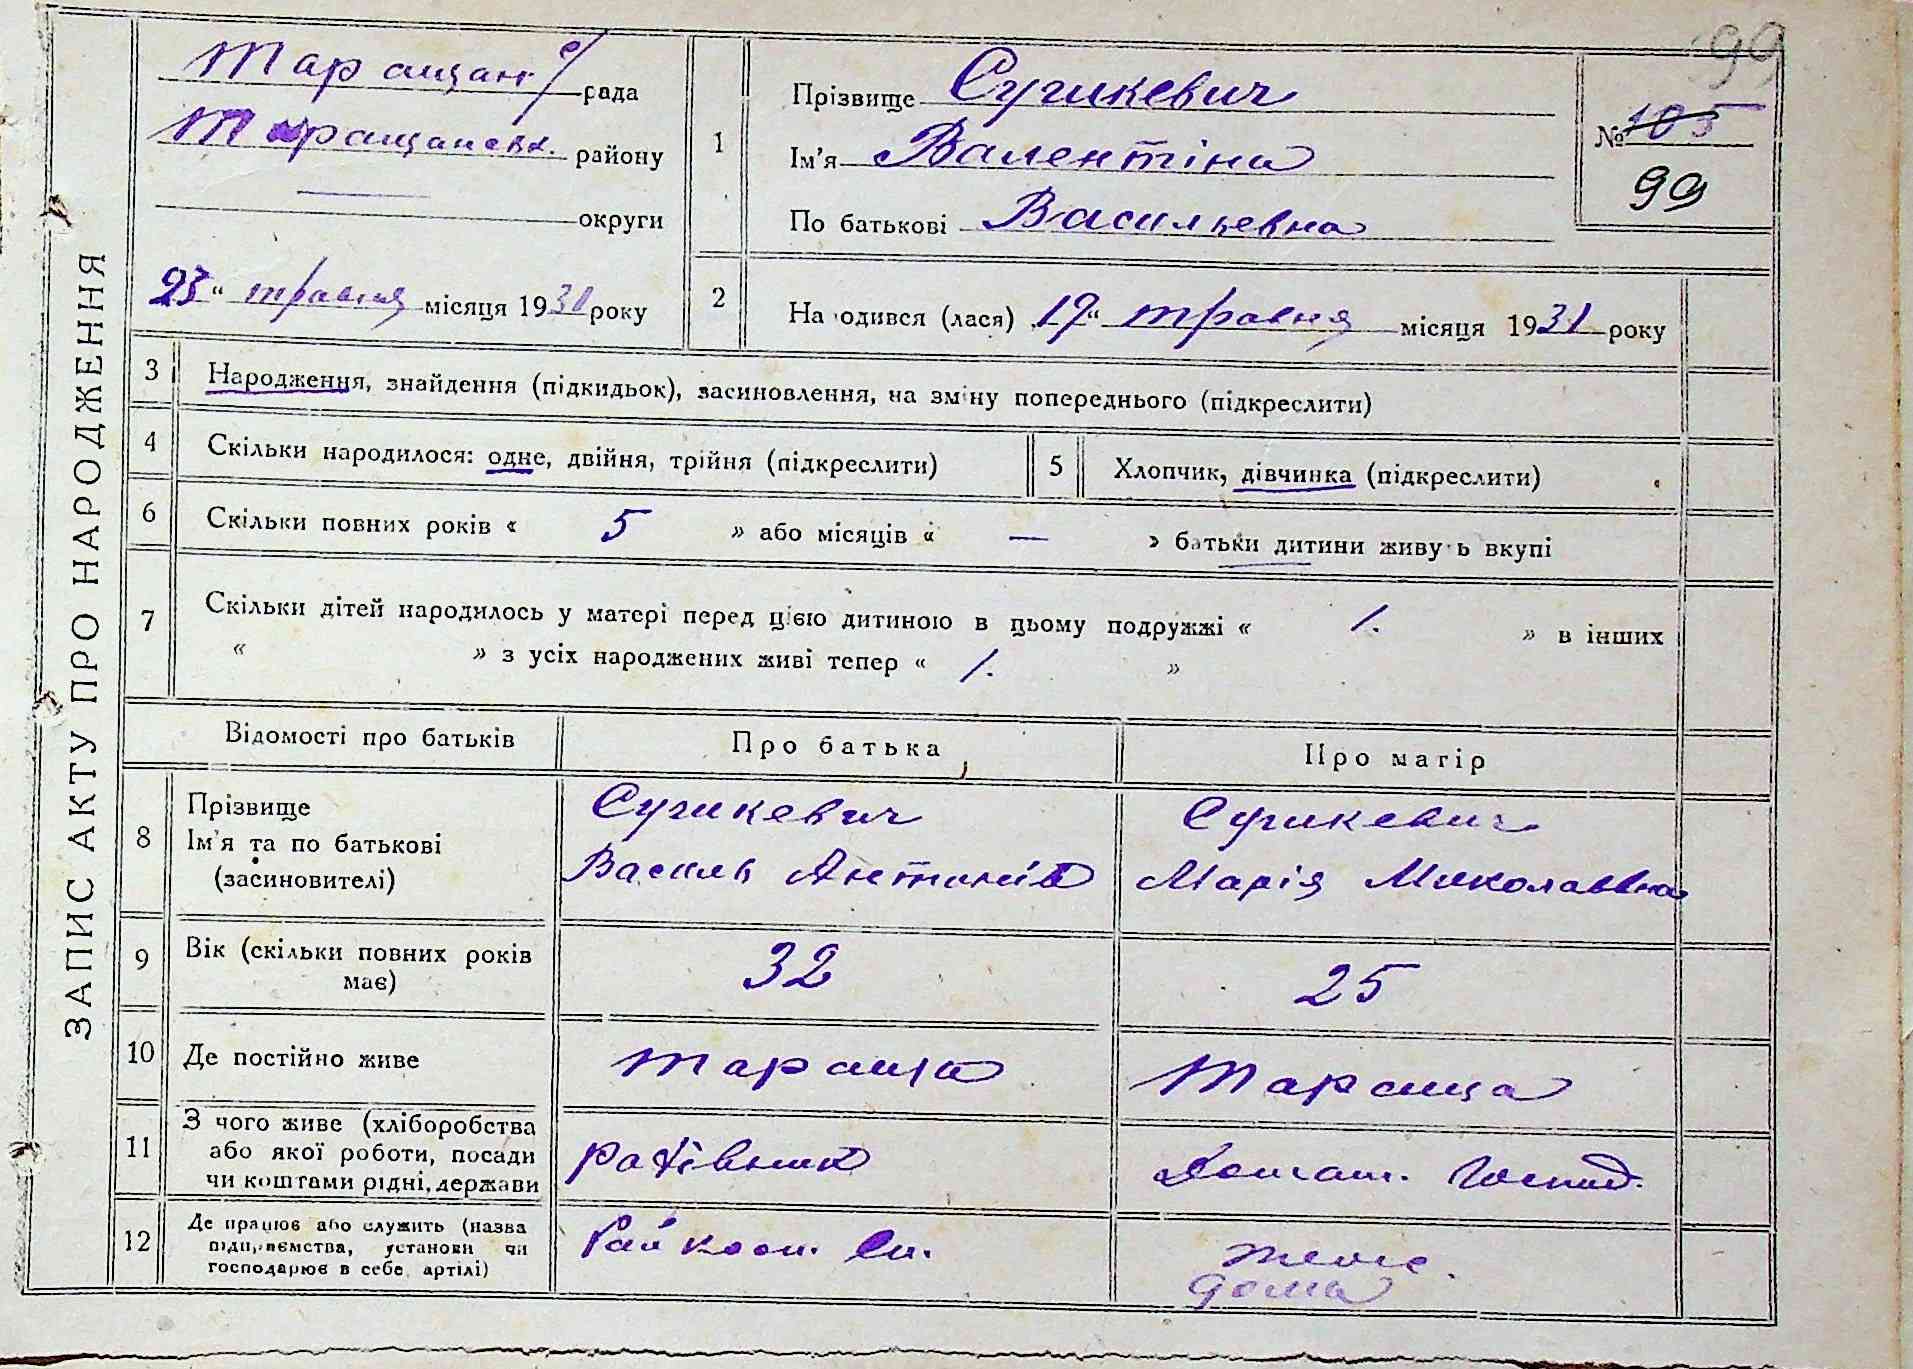 99
Таращан с/рада
Таращанськ. району
округи
23 " травня місяця 1931 року
ЗАПИС АКТУ ПРО НАРОДЖЕННЯ
1
Прізвище Сушкевич
Ім'я Валентіна
По батькові Васильевна
№ 105
99
2
На одився (лася) 19 " травня місяця 1931 року
3 Народження, знайдення (підкидьок), засиновлення, на зміну попереднього (підкреслити)
4 Скільки народилося: одне, двійня, трійня (підкреслити)
5 Хлопчик, дівчинка (підкреслити)
6 Скільки повних років « 5 » або місяців « — » батьки дитини живу ь вкупі
7 Скільки дітей народилось у матері перед цією дитиною в цьому подружжі « 1. » в інших
« » з усіх народжених живі тепер « 1. »
Відомості про батьків
Про батька
Про матір
8
Прізвище
Ім'я та по батькові
(засиновителі)
Сушкевич
Василь Антонів
Сушкевич
Марія Миколаївна
9
Вік (скільки повних років
має)
32
25
10 Де постійно живе
Тараща
Тараща
11
З чого живе (хліборобства
або якої роботи, посади
чи коштами рідні, держави
рахівник
Домаш. Господ.
12
Де працює або служить (назва
підприємства, установи чи
господарює в себе, артілі)
Райкооп.
дома